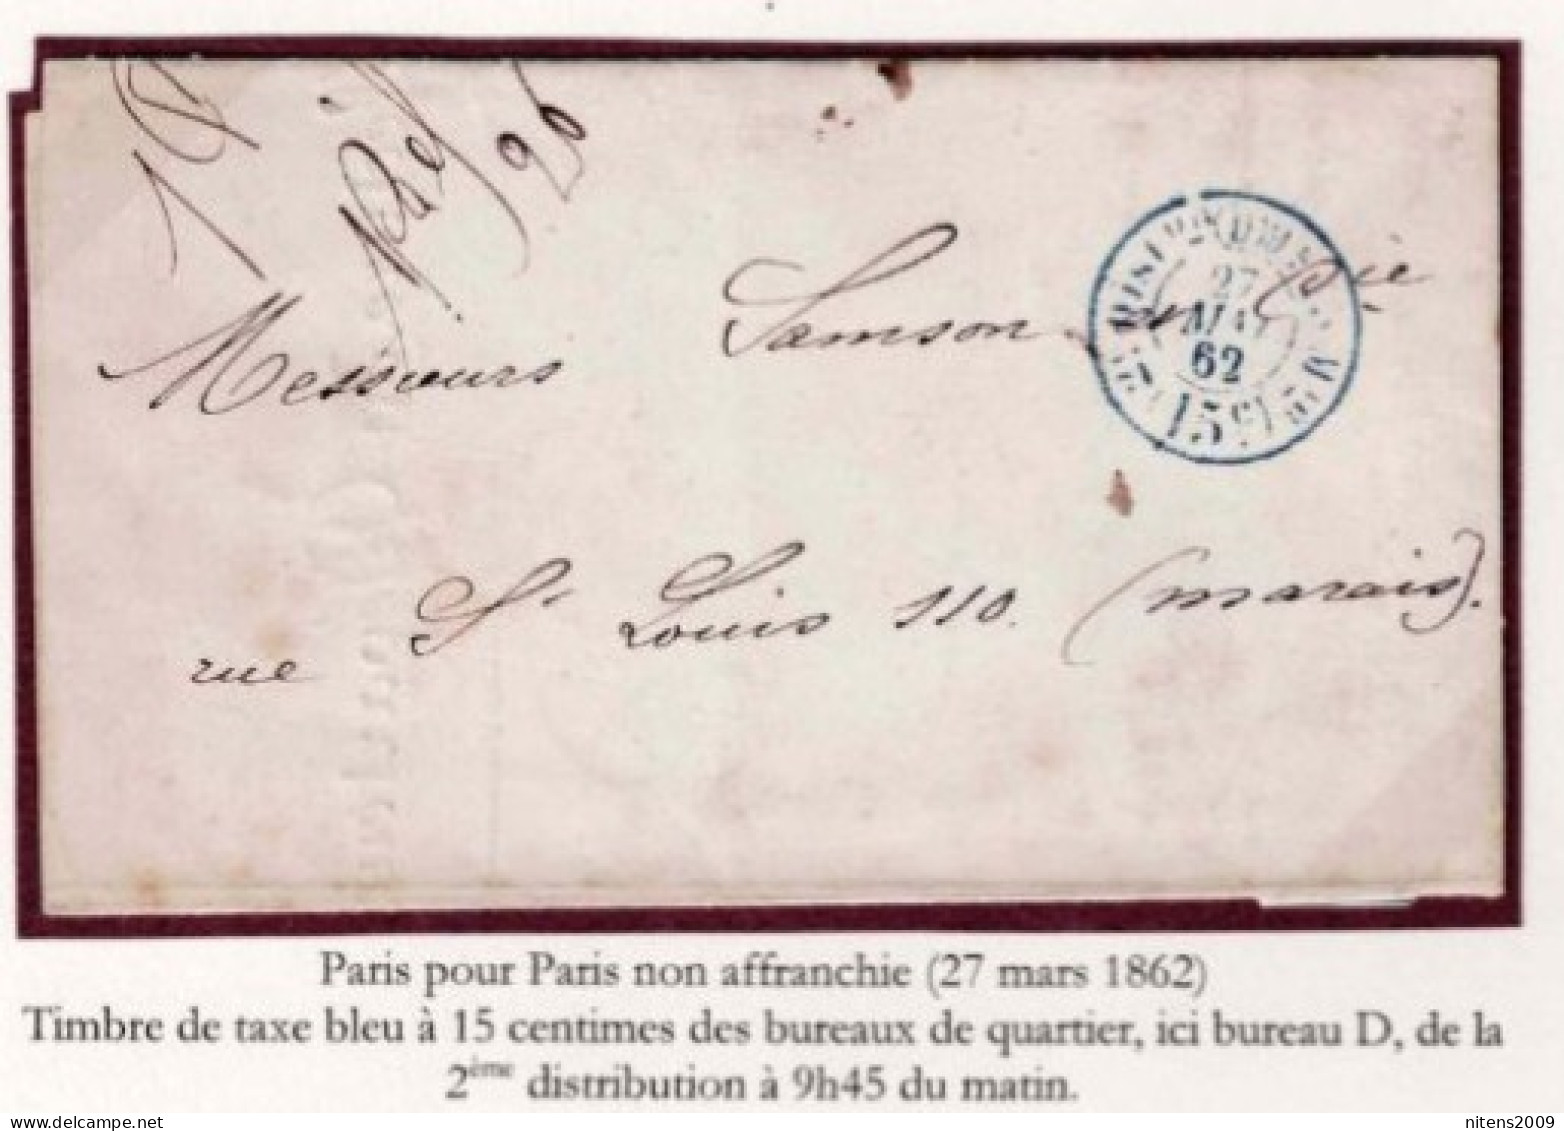 Messieurs Samson et Cie
27
62
15c
rue St Louis 110. (marais).
Paris pour Paris non affranchie (27 mars 1862)
Timbre de taxe bleu à 15 centimes des bureaux de quartier, ici bureau D, de la
2ème distribution à 9h45 du matin.
nitens2009